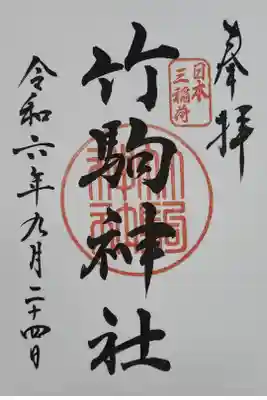 奉拝
日本
三稲荷
竹駒神社
令和六年九月二十四日